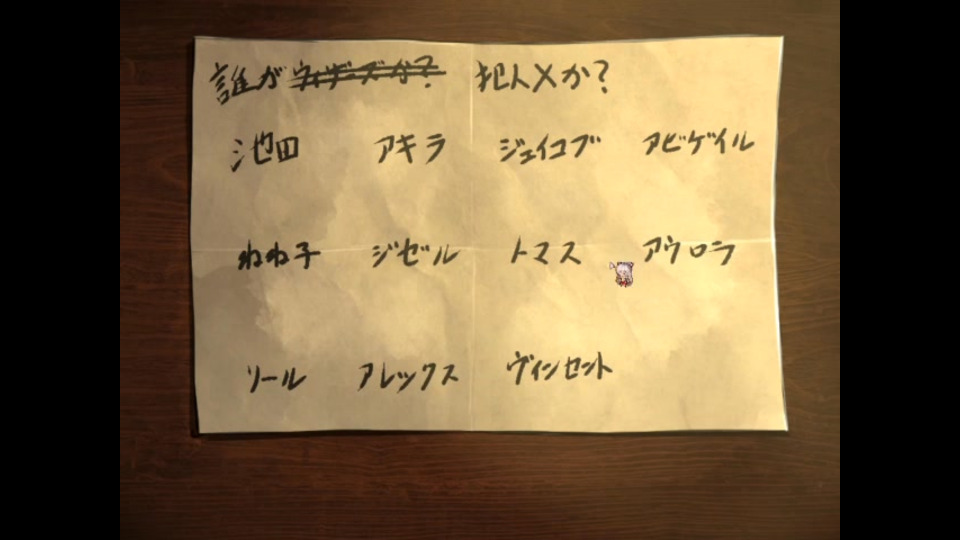 誰がウィザーズか? 犯人Xか?
池田 アキラ ジェイコブ アビゲイル
ねね子 ジゼル トマス アウロラ
リール アレックス ヴィンセント